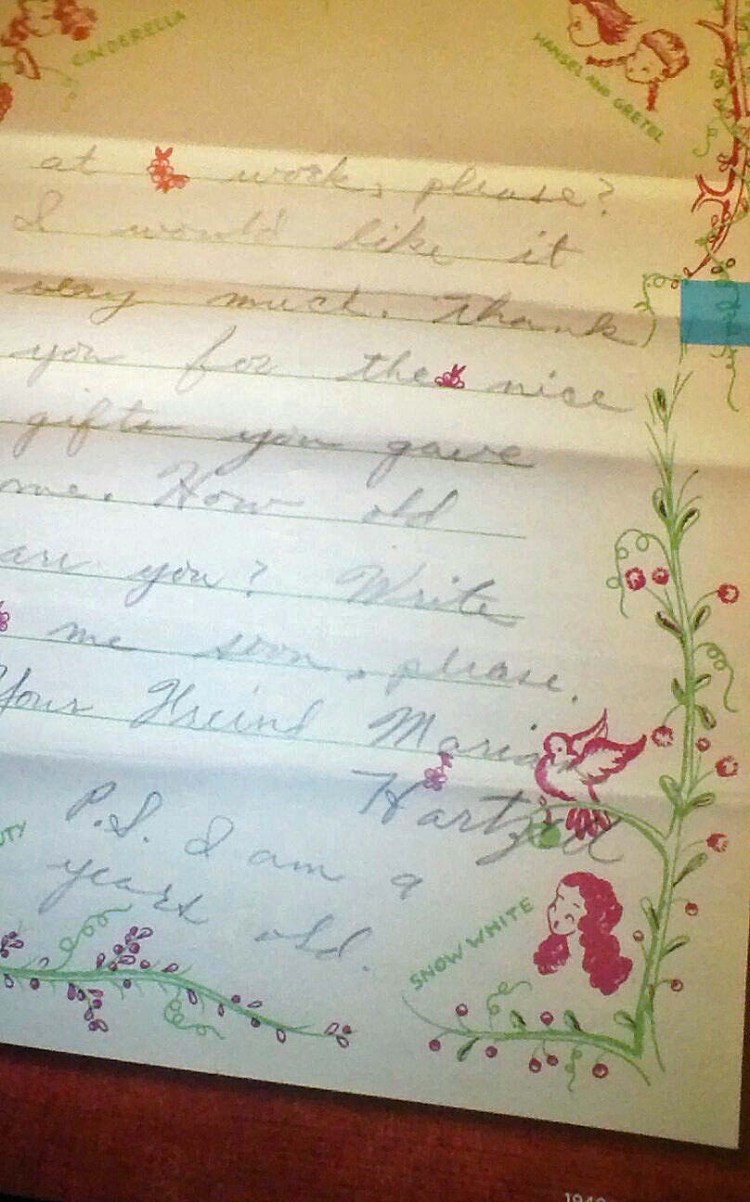 CINDERELLA
HANSEL AND GRETEL
at work, please?
I would like it
very much. Thank
you for the nice
gifts you gave
me. How old
are you? Write
me soon, please.
Your Freind Marian
Hartzell
P.S. I am 9
years old.
UTY
SNOW WHITE